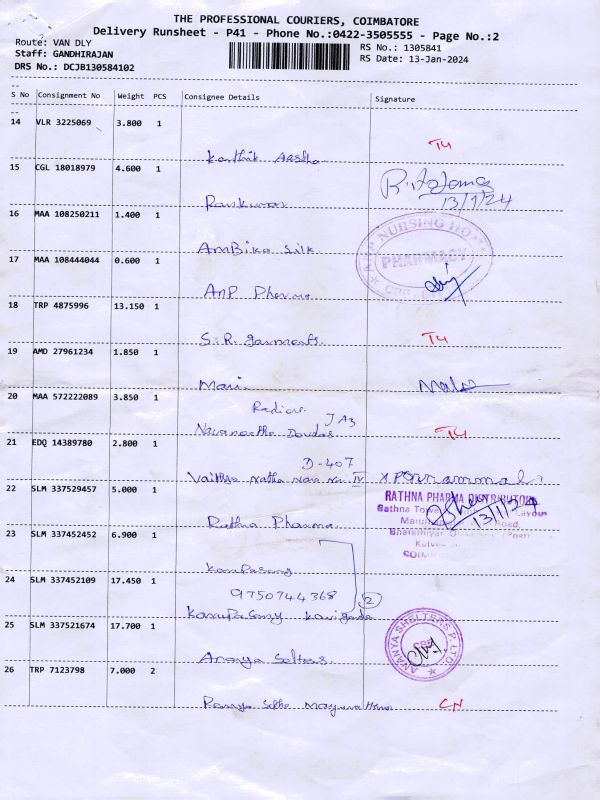 THE PROFESSIONAL COURIERS, COIMBATORE
Delivery Runsheet - P41 - Phone No.:0422-3505555 - Page No.:2
Route: VAN DLY
Staff: GANDHIRAJAN
DRS No.: DCJB130584102
RS No.: 1305841
RS Date: 13-Jan-2024
S No Consignment No Weight PCS Consignee Details Signature
14 VLR 3225069 3.800 1
Karthik
15 CGL 18018979 4.600 1
Ramkumar 13/1/24
16 MAA 108250211 1.400 1
AmBika Silk
NURSING HO
PHARMACY
17 MAA 108444044 0.600 1
ANP Pharma
18 TRP 4875996 13.150 1
S.R. garments
19 AMD 27961234 1.850 1
Mani
20 MAA 572222089 3.850 1
JA3
Navaneetha
21 EDQ 14389780 2.800 1
D-407
Vaithya natha IV
22 SLM 337529457 5.000 1
RATHNA PHARMA DISTRIBUTOR
Rathna Towe
13/1/24
Road,
Bharathiyar
Rathna Pharma
23 SLM 337452452 6.900 1
Karupasamy
24 SLM 337452109 17.450 1
9750744368
2
Karupasamy
25 SLM 337521674 17.700 1
ANANYA SHELTERS P. LTD.
Ananya Selters
26 TRP 7123798 7.000 2
CN